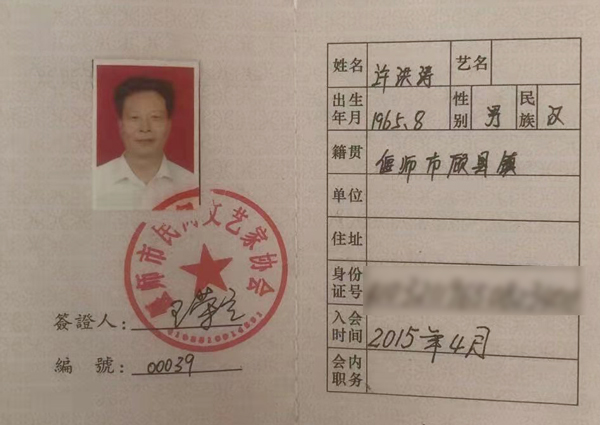 偃师市民间文艺家协会
簽證人:
編 號: 00039
姓名 许洪涛 艺名
出生年月 1965.8 性别 男 民族 汉
籍贯 偃师市顾县镇
单位
住址
身份证号
入会时间 2015年4月
会内职务